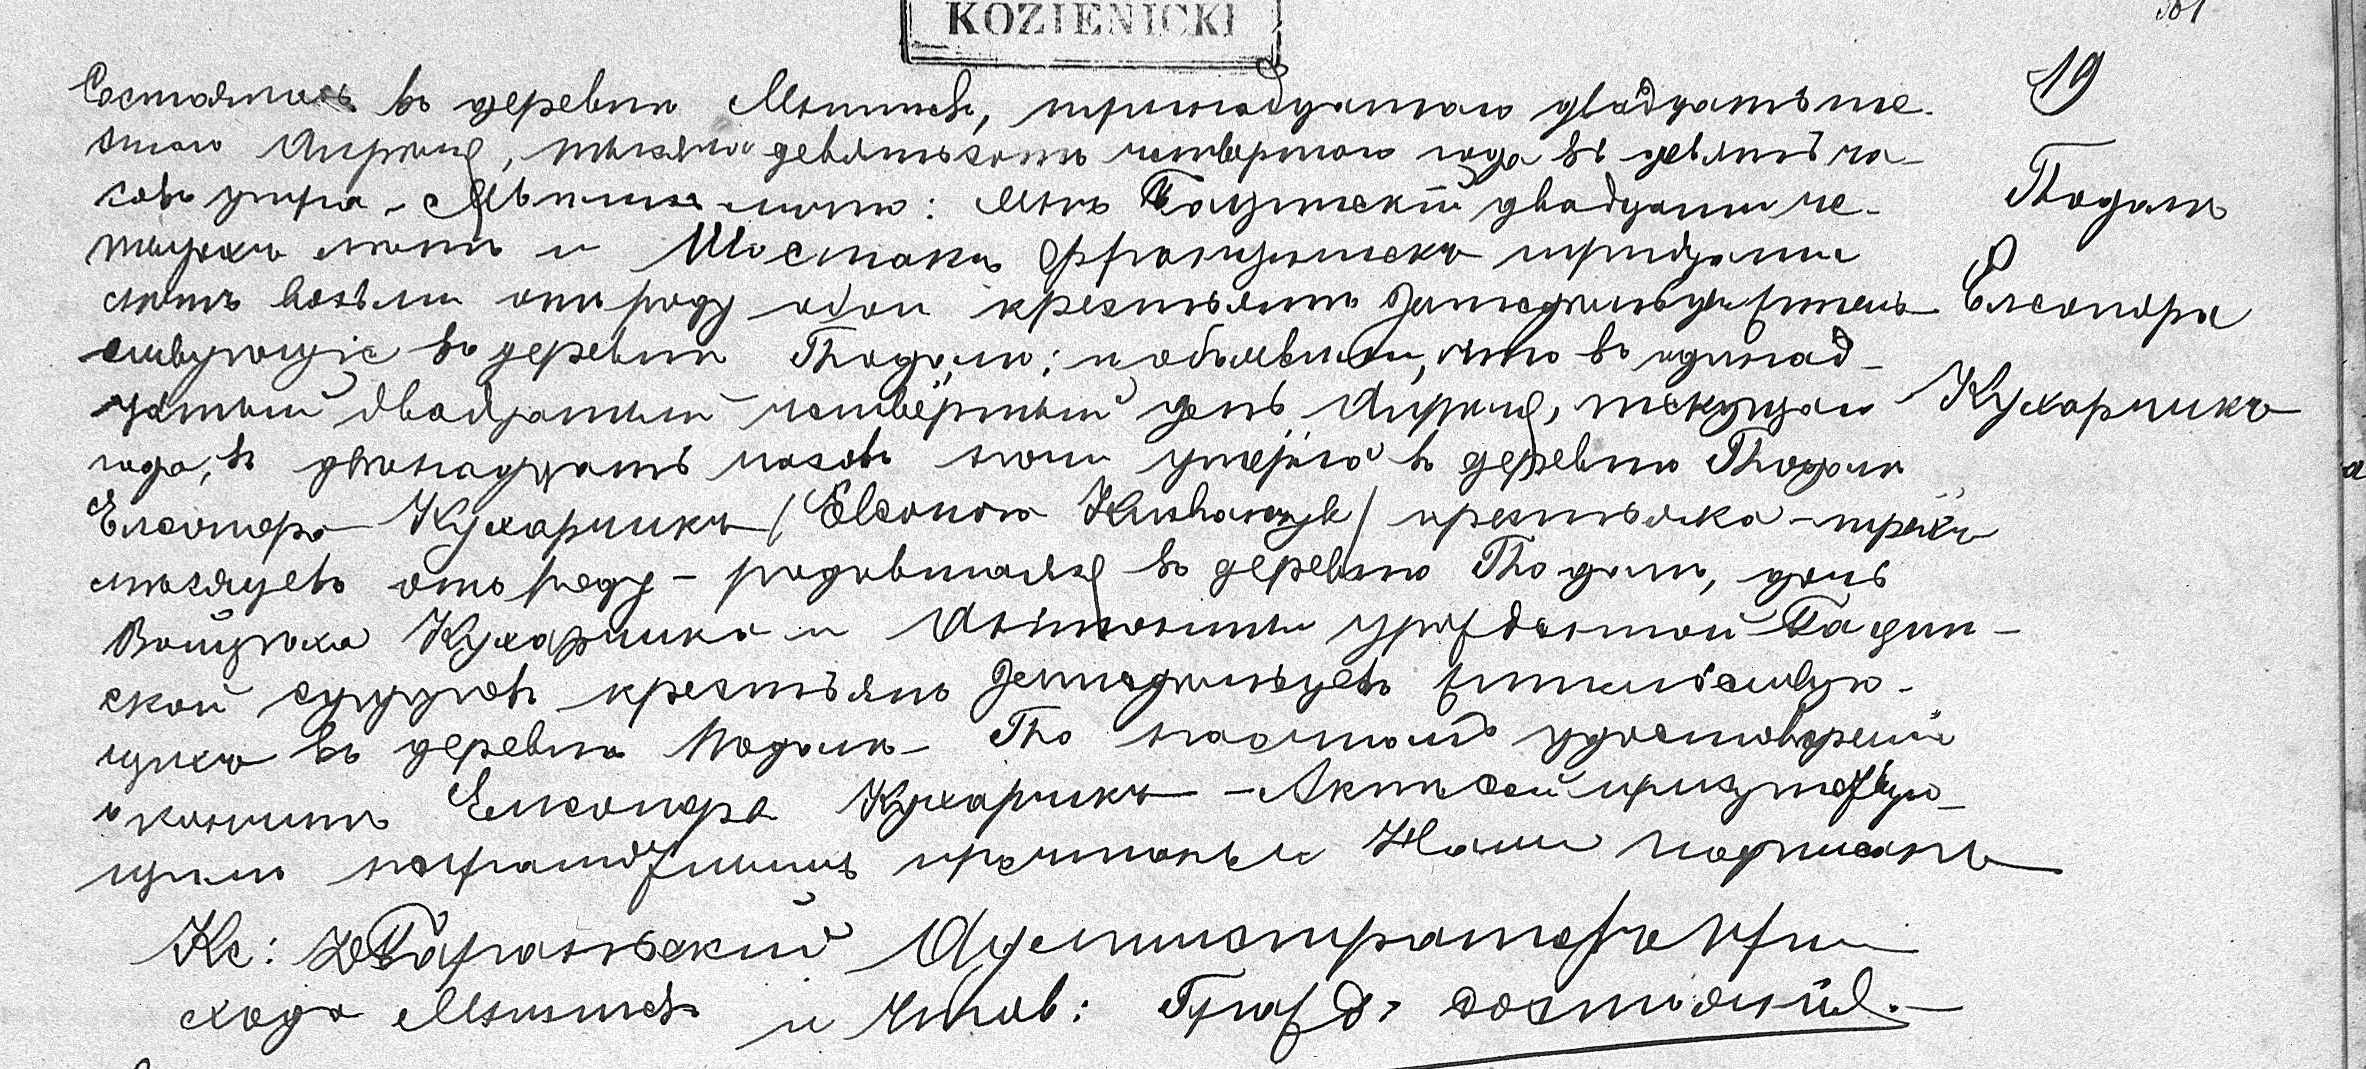 KOZIENICKI
19
Состоялось въ деревнѣ Мнишевъ, тринадцатаго двадцать ше-
стаго Апрѣля, тысяча девятьсотъ четвертаго года въ девять ча-
совъ утра. – Явились лично: Янъ двадцати че-
тырехъ лѣтъ и Шостакъ Францишекъ тридцати
лѣтъ отъ роду оба крестьяне земледѣльцы житель-
ствующіе въ деревнѣ Подоле; и объявили, что въ одинад-
цатый двадцатый четвёртый день Апрѣля, текущаго
года, въ двѣнадцать часовъ ночи умерла въ деревнѣ Подоле
Елеонора Кухарчикъ /Eleonora Kucharczyk/ крестьянка – трёхъ
мѣсяцевъ отъ роду – родившаяся въ деревнѣ Подоле, дочь
Войцѣха Кухарчика и Антонины урожденной
супруговъ крестьянъ земледѣльцевъ жительствую-
щихъ въ деревнѣ Подоле – По настоящемъ удостовѣреніи
о кончинѣ Елеонора Кухарчикъ – Актъ сей присутствую-
щимъ неграмотнымъ прочитанъ Нами подписанъ
Кс: Администраторъ При-
хода Мнишевъ и Чинов: Граж: состоянія. –
Подоле
Елеонора
Кухарчикъ